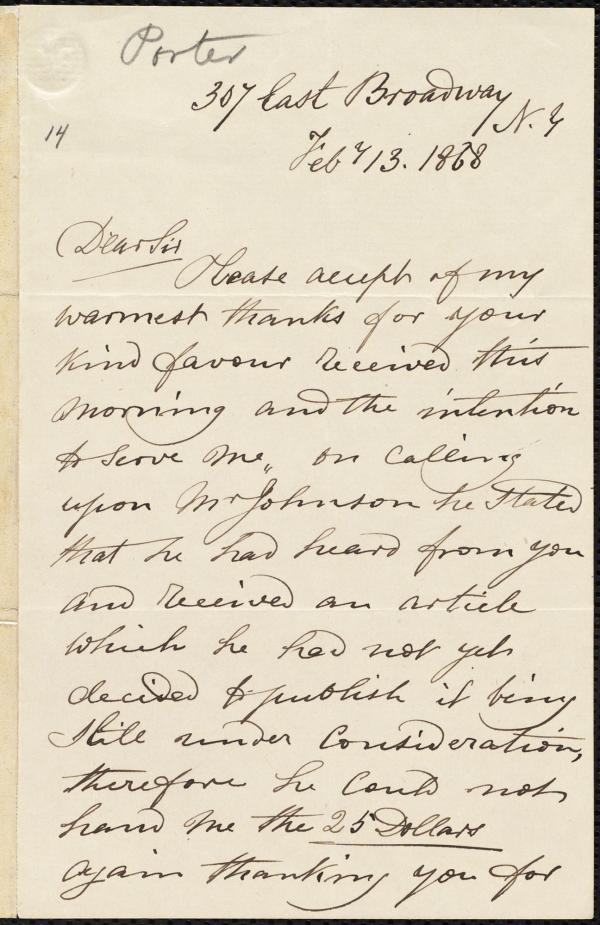 Porter
307 East Broadway N.Y
14
Feby 13. 1868
Dear Sir
Please accept of my
warmest thanks for your
kind favour received this
morning and the intention
to serve me,, on calling
upon Mr Johnson he stated
that he had heard from you
and received an article
which he had not yet
decided to publish it being
still under consideration,
therefore he could not
hand me the 25 Dollars
again thanking you for